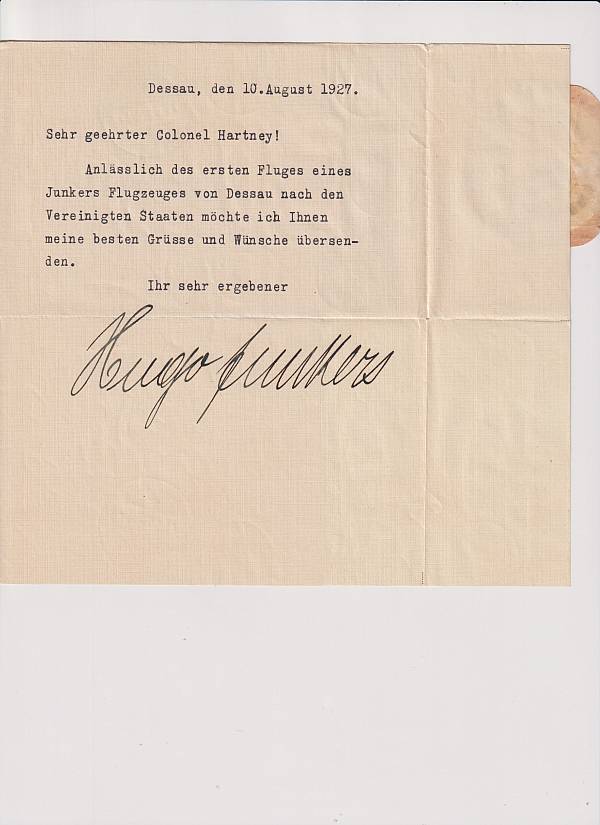 Dessau, den 10.August 1927.
Sehr geehrter Colonel Hartney!
Anlässlich des ersten Fluges eines
Junkers Flugzeuges von Dessau nach den
Vereinigten Staaten möchte ich Ihnen
meine besten Grüsse und Wünsche übersen-
den.
Ihr sehr ergebener
Hugo Junkers